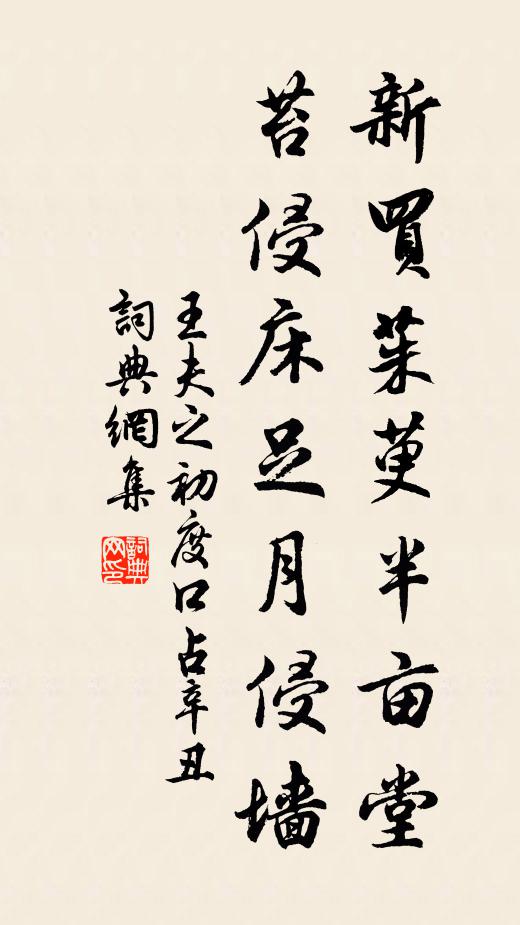 新買茱萸半亩堂
苔侵床足月侵墙
王夫之初度口占辛丑
詞典網集
詞典网印